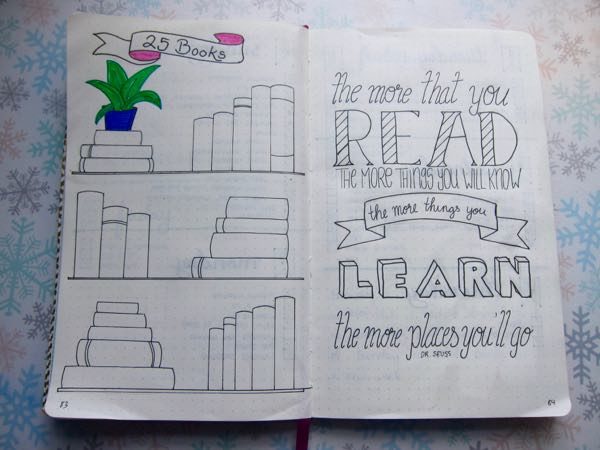 25 Books
83
the more that you
READ
THE MORE THINGS YOU WILL KNOW
the more things you
LEARN
the more places you'll go
DR. SEUSS
84